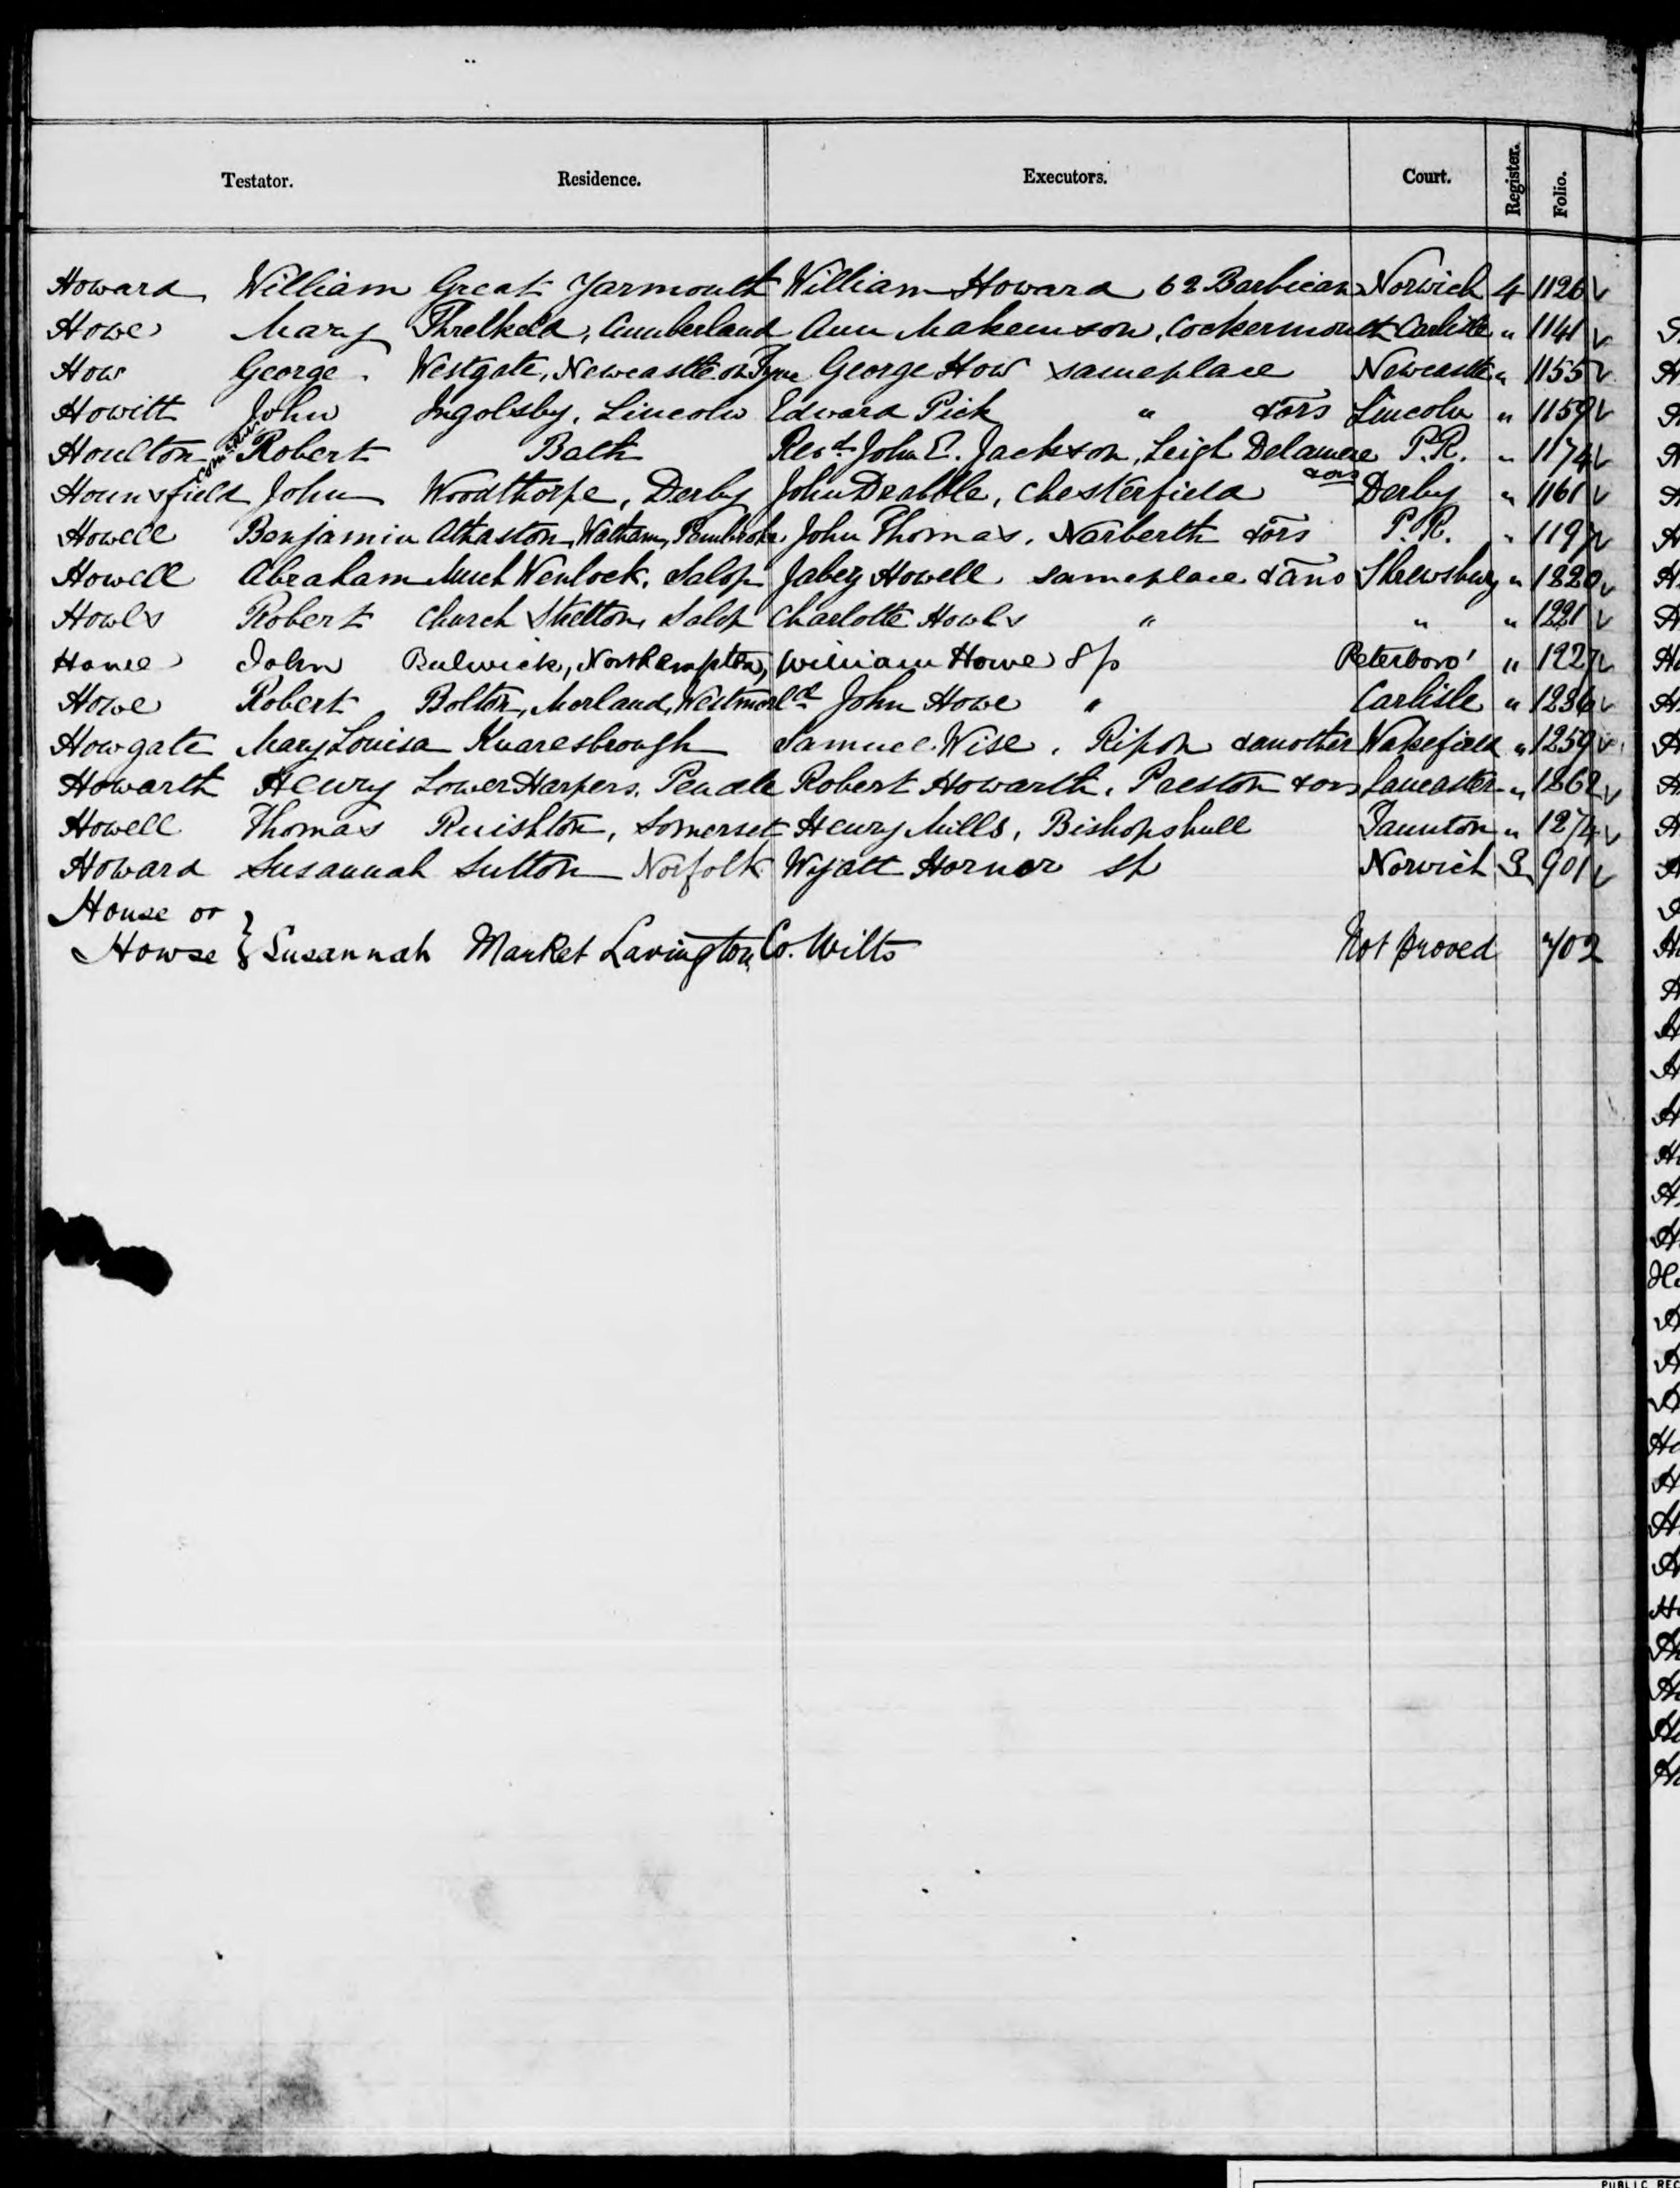 Testator. Residence. Executors. Court. Register. Folio.
Howard William Great Yarmouth William Howard 62 Barbican Norwich 4 1126
Howe Mary Threlkeld, Cumberland Ann Makemson, Cockermouth Carlisle " 1141
How George Westgate, Newcastle on Tyne George How same place Newcastle " 1155
Howitt John Ingolsby, Lincoln Edward Pick " & ors Lincoln " 1159
Houlton Robert Bath Revd. John E. Jackson, Leigh Delamere & ors P.R. " 1174
Hounsfield John Woodthorpe, Derby John Drabble, Chesterfield Derby " 1161
Howell Benjamin Athaston, Pembroke John Thomas, Narberth & ors P.R. " 1197
Howell Abraham Much Wenlock, Salop Jabez Howell same place & ano Shrewsbury " 1220
Howls Robert Church Stretton, Salop Charlotte Howls " " " 1221
Howe John Bulwick, Northampton, William Howe S/p Peterboro' " 1227
Howe Robert Bolton, Morland, Westmorld. John Howe " Carlisle " 1236
Howgate Mary Louisa Knaresbrough Samuel Wise, Ripon & another Wakefield " 1259
Howarth Henry Lower Harpers, Pendle Robert Howarth, Preston & ors Lancaster " 1262
Howell Thomas Ruishton, Somerset Henry Mills, Bishopshull Taunton " 1274
Howard Susannah Sutton Norfolk Wyatt Horner sp Norwich 3 901
House or
Howse } Susannah Market Lavington, Co. Wilts Not proved 702